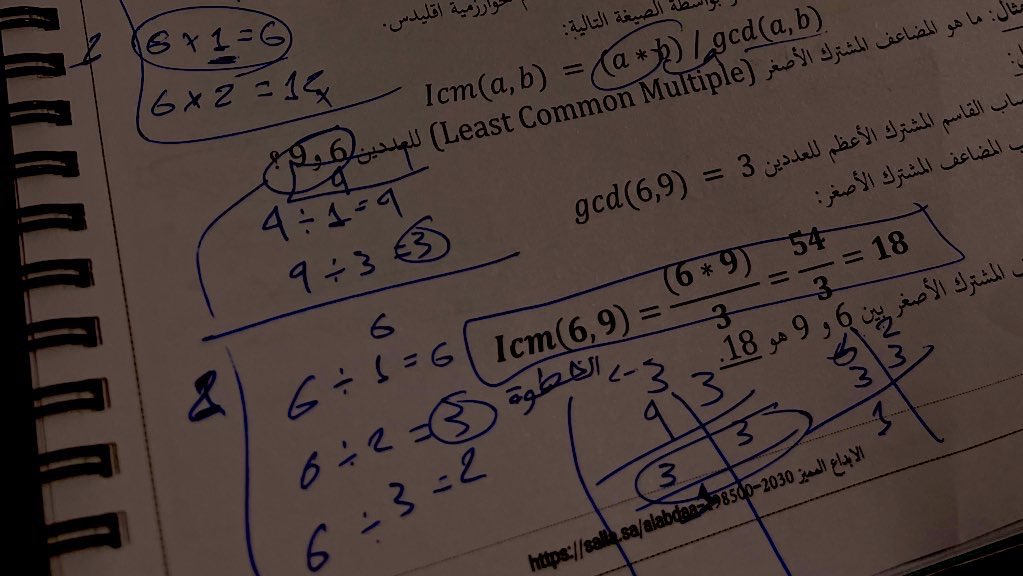 بواسطة الصيغة التالية:
خوارزمية اقليدس.
lcm(a,b) = (a * b) / gcd(a,b)
مثال: ما هو المضاعف المشترك الأصغر (Least Common Multiple) للعددين 6 , 9 ؟
ساب القاسم المشترك الأعظم للعددين gcd(6,9) = 3
ب المضاعف المشترك الأصغر:
lcm(6,9) = (6 * 9) / 3 = 54 / 3 = 18
المشترك الأصغر بين 6 و 9 هو 18.
1
6 × 1 = 6
6 × 2 = 12
9
9 ÷ 1 = 9
9 ÷ 3 = 3
2
6
6 ÷ 1 = 6
6 ÷ 2 = 3
6 ÷ 3 = 2
الخطوة 3
9 3
3 3
1
6 2
3 3
1
الابداع المميز